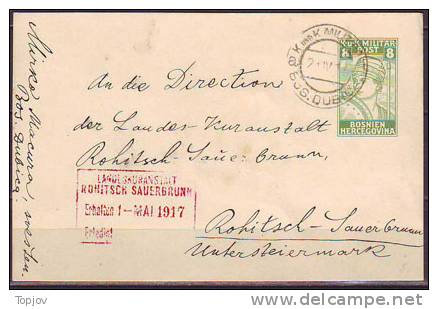 K und K MILIT
BOS. DUBICA
K.u.K. MILITÄR
POST
8
BOSNIEN
HERCEGOVINA
An die Direction
der Landes-Kuranstalt
Rohitsch-Sauerbrunn,
LANDESKURANSTALT
ROHITSCH SAUERBRUNN
Erhalten 1-MAI 1917
Erledigt
Rohitsch-Sauerbrunn
Untersteiermark
Mirko Macura,
Bos. Dubica.
Topjov
http://www.delcampe.net